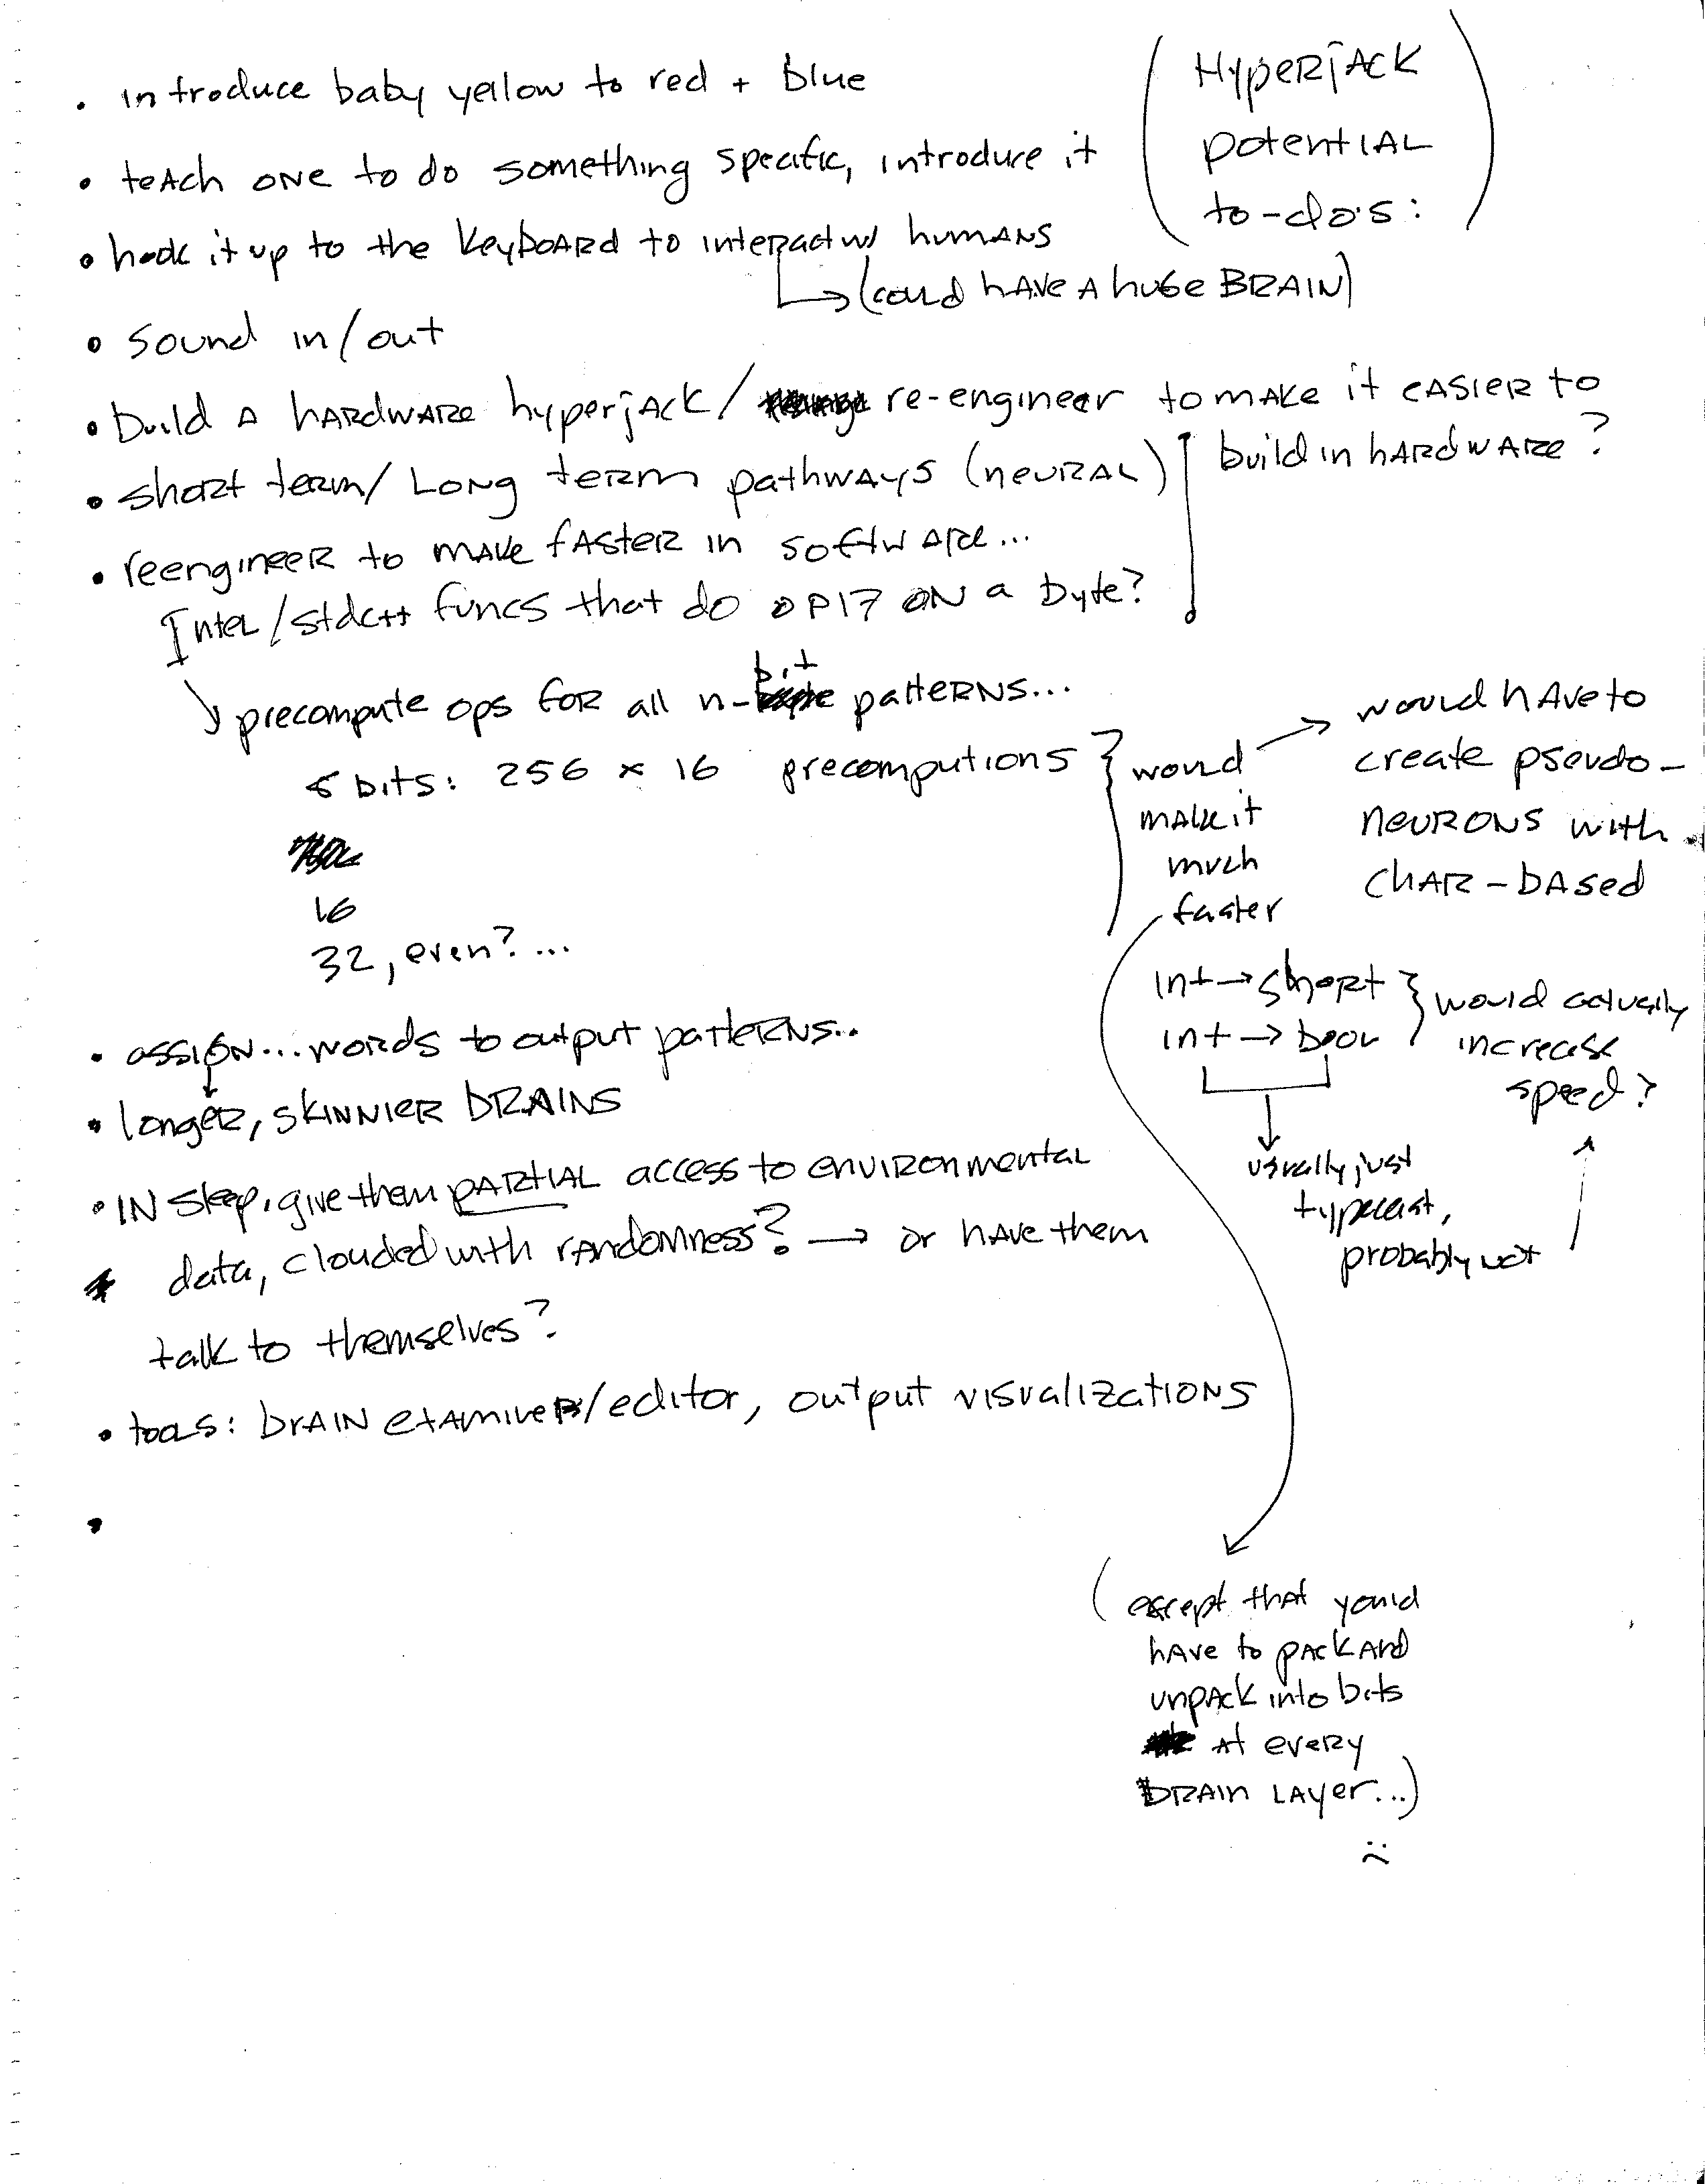 (Hyperjack
potential
to-do's:)
• introduce baby yellow to red + blue
• teach one to do something specific, introduce it
• hook it up to the keyboard to interact w/ humans
→ (could have a huge BRAIN)
• sound in/out
• build a hardware hyperjack / re-engineer to make it easier to
build in hardware?
• short term/ Long term pathways (neural)
• reengineer to make faster in software...
Intel/stdc++ funcs that do OP17 ON a byte?
precompute ops for all n-bit patterns...
8 bits: 256 × 16 precomputions } would
make it
much
faster
→ would have to
create pseudo-
neurons with
char-based
16
32, even?...
int → short } would actually
int → bool
increase
speed?
usually just
typecast,
probably not
• assign... words to output patterns..
• longer, skinnier brains
• IN sleep, give them partial access to environmental
data, clouded with randomness? → or have them
talk to themselves?
• tools: brain examiner/editor, output visualizations
•
(except that you'd
have to pack and
unpack into bits
at every
brain layer...)
:(